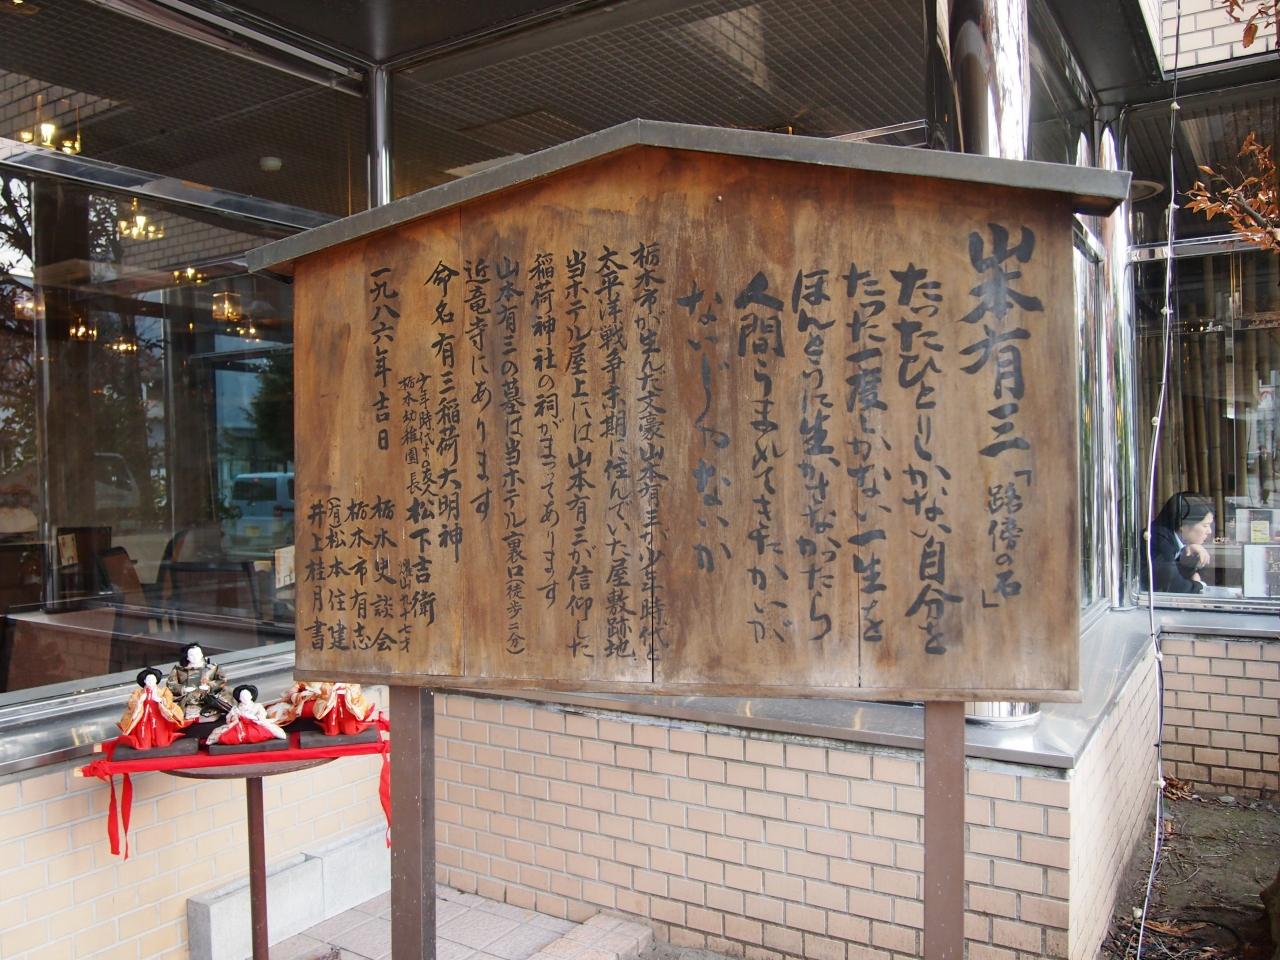 山本有三「路傍の石」
たったひとりしかない自分を
たった一度しかない一生を
ほんとうに生かさなかったら
人間うまれてきたかいが
ないじゃないか
栃木市が生んだ文豪山本有三が少年時代と
太平洋戦争末期に住んでいた屋敷跡地
当ホテル屋上には山本有三が信仰した
稲荷神社の祠がまつってあります
山本有三の墓は当ホテル裏口(徒歩二分)
近竜寺にあります
命名有三稲荷大明神
少年時代よりの友人
栃木幼稚園長
松下吉衛
一九八六年吉日
栃木史談会
栃木市有志
(有)松本住建
井上桂月書